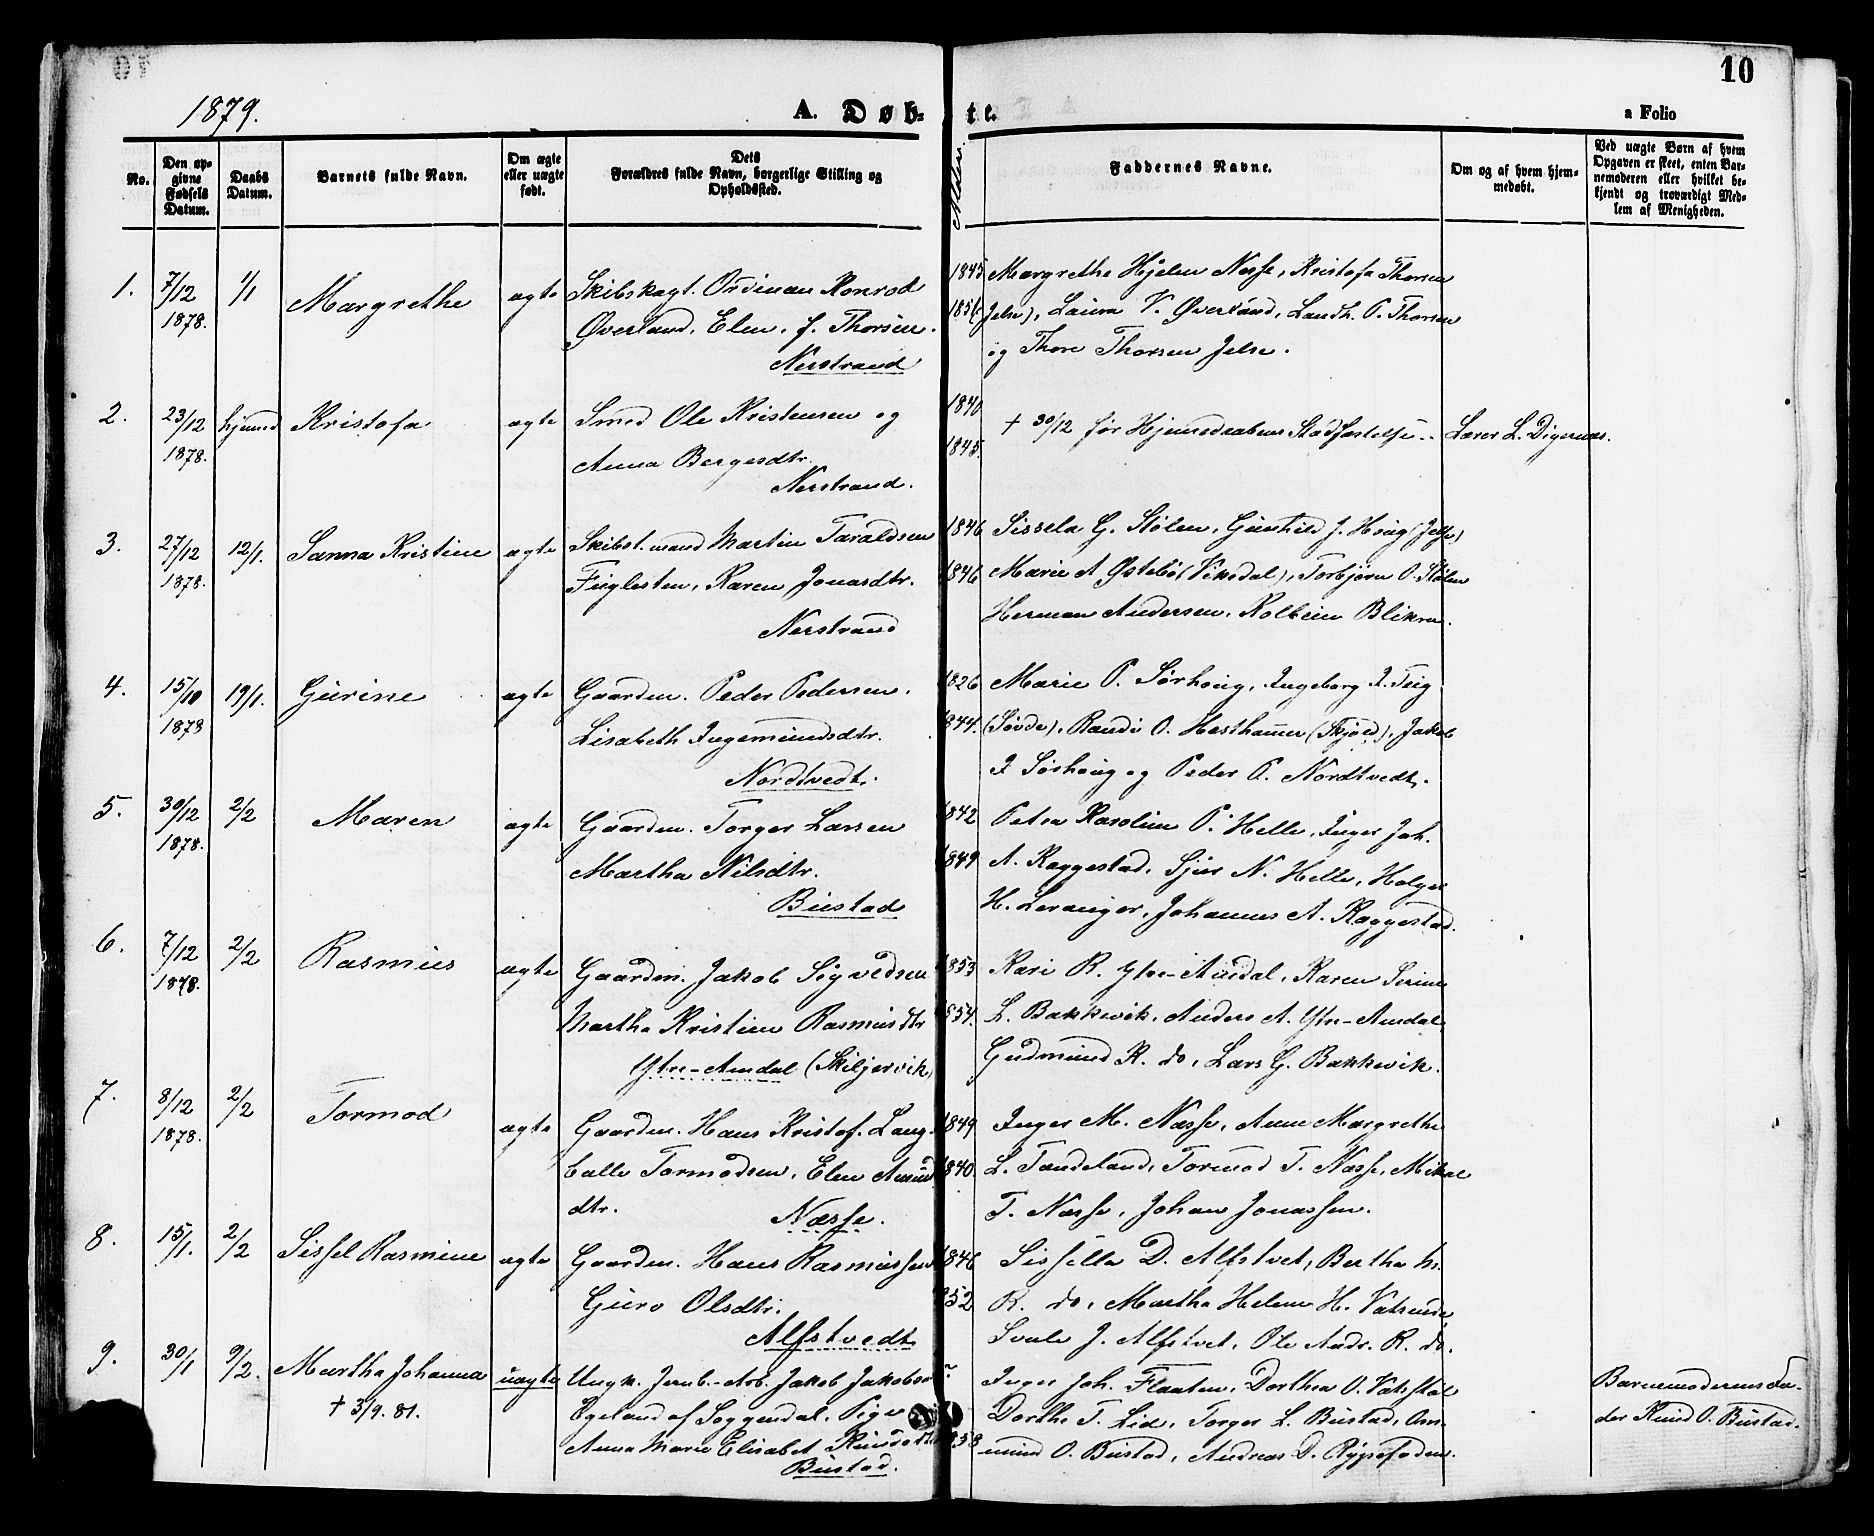 10
1879.
A. Døbte.
a Folio
No.
Den op-
givne
Fødsels
Datum.
Daabs
Datum.
Barnets fulde Navn.
Om ægte
eller uægte
født.
Dets
Forældres fulde Navn, borgerlige Stilling og
Opholdssted.
Alder.
Faddernes Navne.
Om og af hvem hjem-
medøbt.
Ved uægte Børn af hvem
Opgaven er skeet, enten Bar-
nemoderen eller hvilket be-
kjendt og troværdigt Med-
lem af Menigheden.
1. 7/12 1878. 1/1 Margrethe ægte
Skibskapt. Ordinan Konrad
Øverland, Elen, f. Thorsen.
Nerstrand
1845
185
Margrethe Hjelen Næsse, Kristofa Thorsen
Jelse), Laura V. Øverland, Landh. O. Thorsen
og Thore Thorsen Jelse.
2. 23/12 1878. hjemed Kristofa ægte
Smed Ole Kristensen og
Anna Bergesdtr.
Nerstrand.
1840
1845.
† 30/12 før Hjemmedaabens Stadfæstelse..
Lærer L. Digernæs.
3. 27/12 1878. 12/1. Sanna Kristine ægte
Skibst.mand Martin Taraldsen
Fuglesten, Karen Jonasdtr.
Nerstrand
1846
1846
Sissela G. Stølen, Gunhild J. Houg (Jelse)
Marie A Østebø (Vikedal), Torbjørn O. Stølen
Herman Andersen, Kolbein Blikra.
4. 15/10 1878 19/1. Gurine ægte
Gaardm. Peder Pedersen.
Lisabeth Ingemundsdtr.
Nordtvedt.
1826
1844.
Marie P. Sørhoug, Ingeborg I. Teig
(Søvde), Randi O. Hesthammer (Skjold), Jakob
I Sørhoug og Peder P. Nordtvedt.
5. 30/12 1878. 2/2 Maren ægte
Gaardm. Torger Larsen
Martha Nilsdtr.
Bustad
1842
1849.
Petra Karolin P. Helle, Inger Joh.
A. Raggestad, Sjur N. Helle, Holger
H. Leranger, Johannes A. Raggestad.
6. 7/12 1878. 2/2 Rasmus ægte
Gaardm. Jakob Sigvedsen
Martha Kristine Rasmusdtr
Ytre-Amdal (Skiljervik)
1853
1854.
Kari R. Ytre-Amdal, Karen Serine
L. Bakkevik, Anders A. Ytre-Amdal
Gudmund R. do, Lars G. Bakkevik.
7. 8/12 1878. 2/2 Tormod ægte
Gaardm. Hans Kristof. Lang-
balle Tormodsen, Elen Amund
dtr.
Næsse.
1849
1840.
Inger M. Næsse, Anne Margrethe
L. Tandeland, Tormod T. Næsse, Mikal
T. Næsse, Johan Jonassen.
8. 15/1. 2/2 Sissel Rasmine ægte
Gaardm. Hans Rasmussen
Guro Olsdtr.
Alfstvedt
1846
1852
Sissella D. Alfstvet, Bertha M.
R. do, Martha Helene H. Vatsende,
Svale J. Alfstvet, Ole Andr. R. do.
9. 30/1 9/2. Martha Johanna uægte
† 3/9. 81.
Ungk. Jernb.-Arb. Jakob Jakobsen
Egeland af Soggendal, Pige
Anna Marie Elisabet Knudsdtr
Bustad.
1858
Inger Joh. Flaaten, Dorthea O. Vatsstøl
Dorthe T. Lid, Torger L. Bustad, Om-
mund O. Bustad, Andreas D. Rypsfoden.
Barnemoderens Fa-
der Knud O. Bustad.